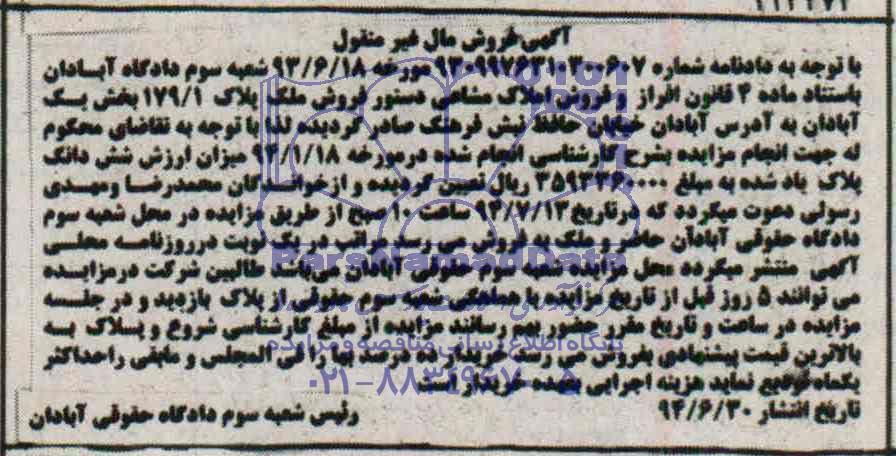 آگهی فروش مال غیر منقول
با توجه به دادنامه شماره ۹۳۰۹۹۷۶۳۱۰۳۰۰۶۰۷ مورخه ۹۳/۶/۱۸ شعبه سوم دادگاه آبادان
باستناد ماده ۴ قانون افراز و فروش املاک مشاعی دستور فروش ملک پلاک ۱۷۹/۱ بخش یک
آبادان به آدرس آبادان خیابان حافظ نبش فرهنگ صادر گردیده لذا با توجه به تقاضای محکوم
له جهت انجام مزایده بشرح کارشناسی انجام شده درمورخه ۹۴/۱/۱۸ میزان ارزش شش دانگ
پلاک یاد شده به مبلغ ۳۵۹۳۳۶۰۰۰۰ ریال تعیین گردیده و ازخواندگان محمدرضا ومهدی
رسولی دعوت میگردد که درتاریخ ۹۴/۷/۱۳ ساعت ۱۰ صبح از طریق مزایده در محل شعبه سوم
دادگاه حقوقی آبادان حاضر و ملک به فروش می رسد مراتب در یک نوبت درروزنامه محلی
آگهی منتشر میگردد محل مزایده شعبه سوم حقوقی آبادان می‌باشد طالبین شرکت درمزایده
می توانند ۵ روز قبل از تاریخ مزایده با هماهنگی شعبه سوم حقوقی از پلاک بازدید و در جلسه
مزایده در ساعت و تاریخ مقرر حضور بهم رسانند مزایده از مبلغ کارشناسی شروع و پلاک به
بالاترین قیمت پیشنهادی بفروش می رسد خریدار ده درصد بها را فی المجلس و مابقی راحداکثر
یکماه تودیع نماید هزینه اجرایی بعهده خریدار است
تاریخ انتشار ۹۴/۶/۳۰
رئیس شعبه سوم دادگاه حقوقی آبادان
ParsNamadData
پایگاه اطلاع رسانی مناقصه و مزایده
۰۲۱-۸۸۳۴۹۶۷۰-۵